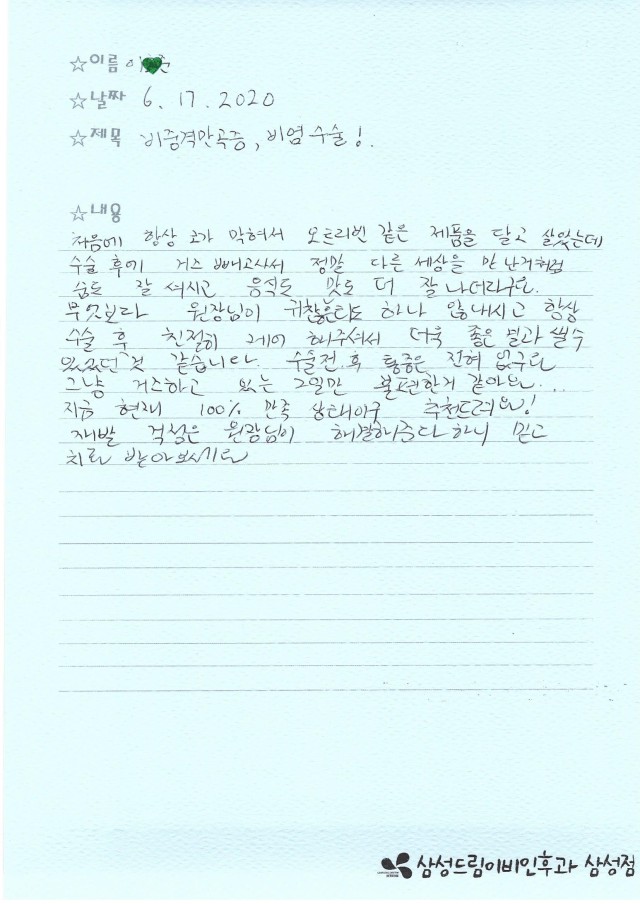 ☆이름 이
☆날짜 6. 17. 2020
☆제목 비중격만곡증, 비염 수술!
☆내용
처음에 항상 코가 막혀서 오트리빈 같은 제품을 달고 살았는데
수술 후에 거즈 빼고나서 정말 다른 세상을 만난거처럼
숨도 잘 셔지고 음식도 맛도 더 잘 나더라구요.
무엇보다 원장님이 귀찮은티도 하나 안내시고 항상
수술 후 친절히 케어 해주셔서 더욱 좋은 결과 쓸수
있었던 것 같습니다. 수술전.후 통증은 전혀 없구요
그냥 거즈하고 있는 2일만 불편한거 같아요...
지금 현재 100% 만족 상태이구 추천드려요!
재발 걱정은 원장님이 해결해준다하니 믿고
치료 받아보세요
삼성드림이비인후과 삼성점